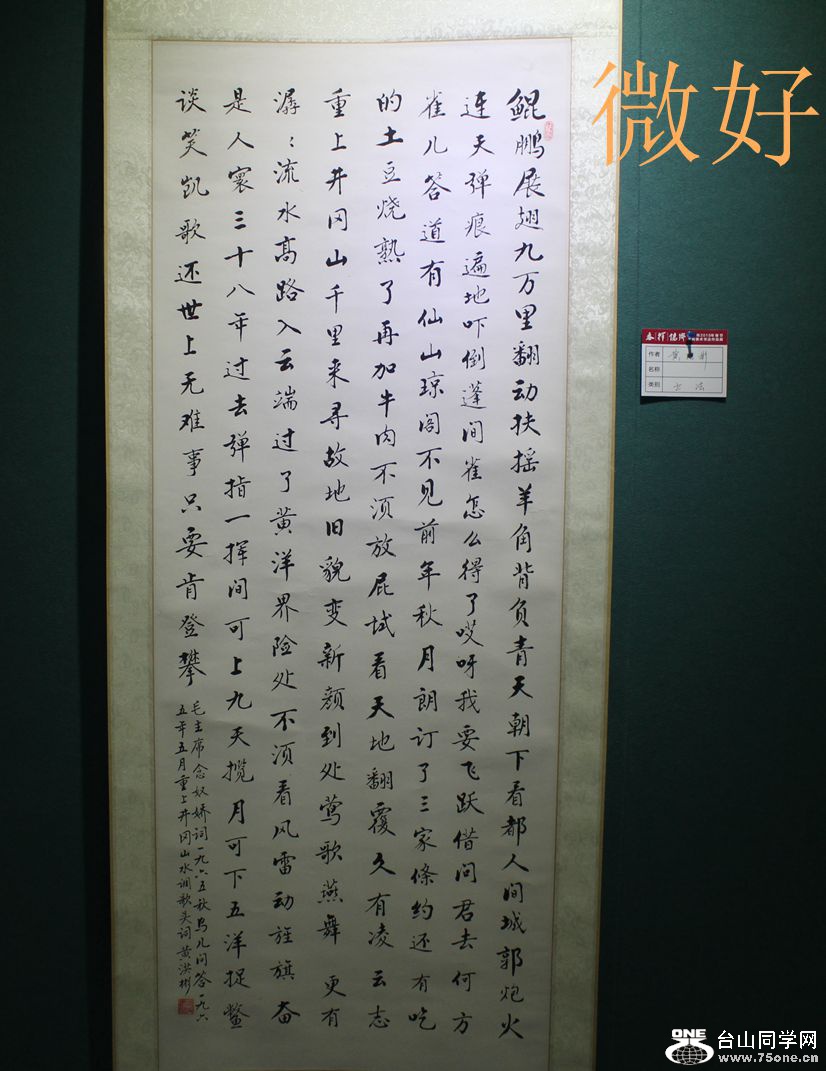 微好
鲲鹏展翅九万里翻动扶摇羊角背负青天朝下看都人间城郭炮火
连天弹痕遍地吓倒蓬间雀怎么得了哎呀我要飞跃借问君去何方
雀儿答道有仙山琼阁不见前年秋月朗订了三家條约还有吃
的土豆烧熟了再加牛肉不须放屁试看天地翻覆久有凌云志
重上井冈山千里来寻故地旧貌变新颜到处莺歌燕舞更有
潺〻流水高路入云端过了黄洋界险处不须看风雷动旌旗奋
是人寰三十八年过去弹指一挥间可上九天揽月可下五洋捉鳖
谈笑凯歌还世上无难事只要肯登攀
毛主席念奴娇词一九六五秋鸟儿问答一九六
五年五月重上井冈山水调歌头词黄洪彬
作者:
名称:
类别: 书法
ONE 台山同学网
www.75one.com